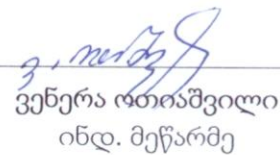 ვენერა ოთიაშვილი
ინდ. მეწარმე